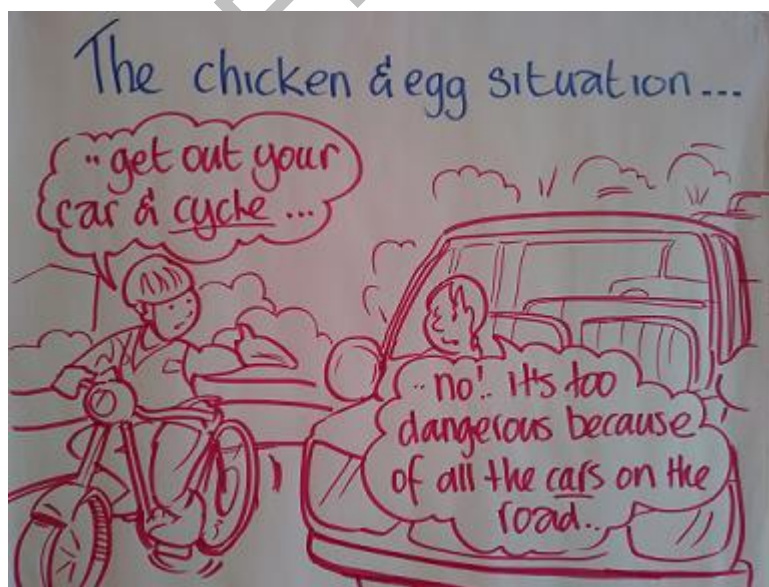 The chicken & egg situation...
.. get out your
car & cycle ...
.. no!. it's too
dangerous because
of all the cars on the
road..